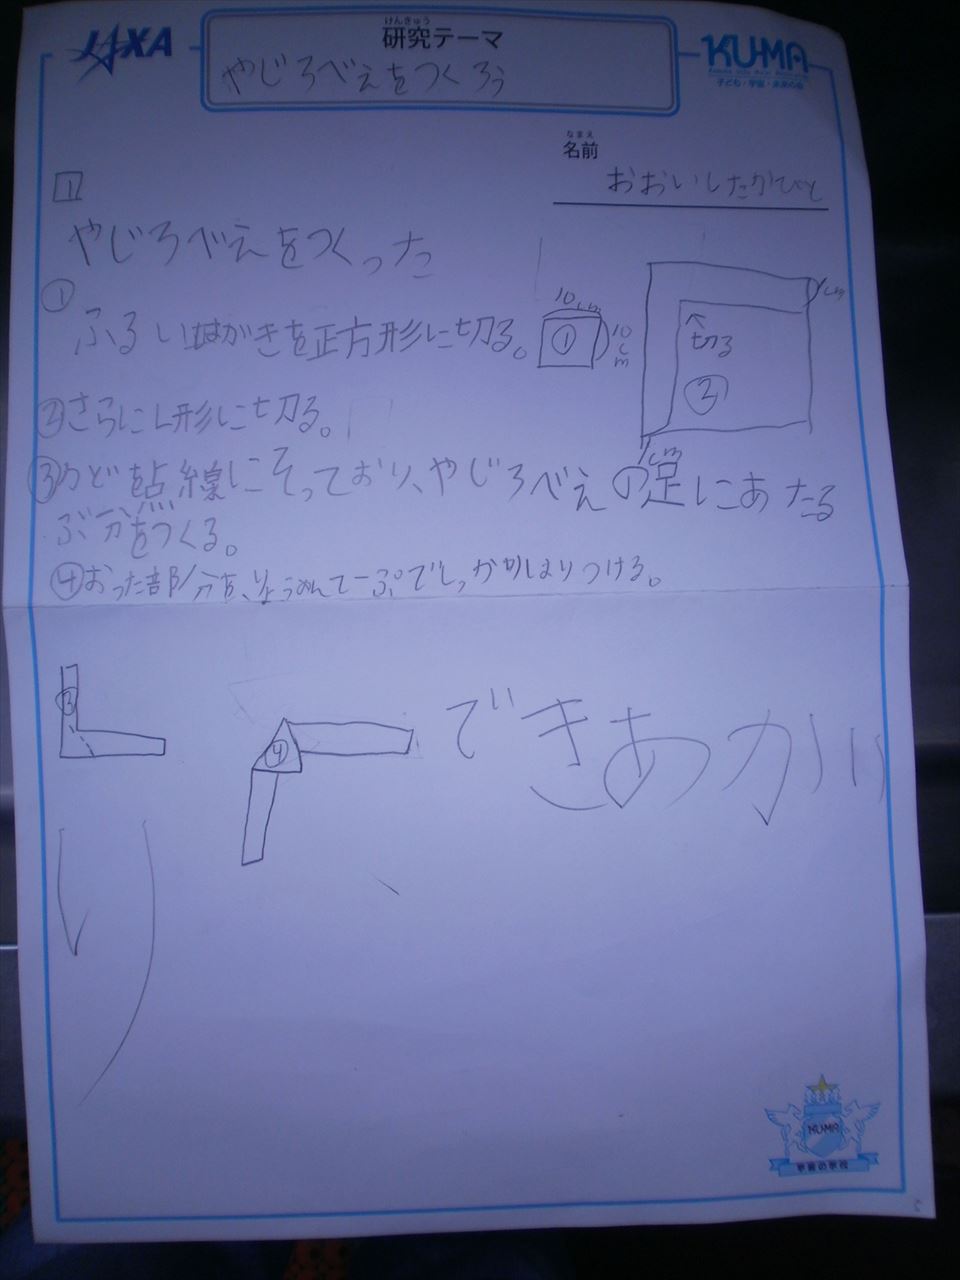 JAXA
けんきゅう
研究テーマ
やじろべえをつくろう
KU-MA
子ども・宇宙・未来の会
なまえ
名前
おおいしたかひと
1
やじろべえをつくった
①
ふるいはがきを正方形に切る。
10cm
①
10cm
1cm
切る
②
1cm
②さらにL形に切る。
③かどを点線にそっており、やじろべえの足にあたる
ぶ分をつくる。
④おった部分を、りょうめんてーぷでしっかりはりつける。
③
④
できあがり
り
KUMA
宇宙の学校